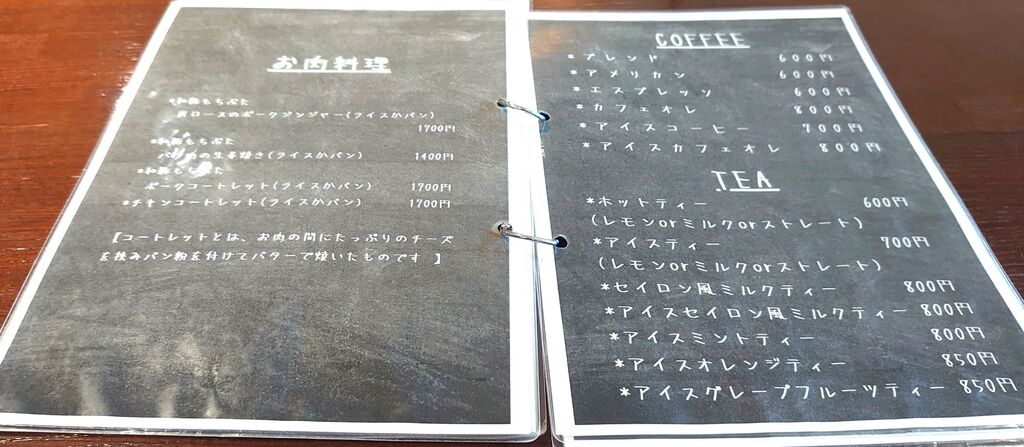 お肉料理
*和豚もちぶた
肩ロースのポークジンジャー(ライスかパン)
1700円
*和豚もちぶた
バラ肉の生姜焼き(ライスかパン) 1400円
*和豚もちぶた
ポークコートレット(ライスかパン) 1700円
*チキンコートレット(ライスかパン) 1700円
【コートレットとは、お肉の間にたっぷりのチーズ
を挟みパン粉を付けてバターで焼いたものです 】
COFFEE
*ブレンド 600円
*アメリカン 600円
*エスプレッソ 600円
*カフェオレ 800円
*アイスコーヒー 700円
*アイスカフェオレ 800円
TEA
*ホットティー 600円
(レモンorミルクorストレート)
*アイスティー 700円
(レモンorミルクorストレート)
*セイロン風ミルクティー 800円
*アイスセイロン風ミルクティー 800円
*アイスミントティー 800円
*アイスオレンジティー 850円
*アイスグレープフルーツティー 850円